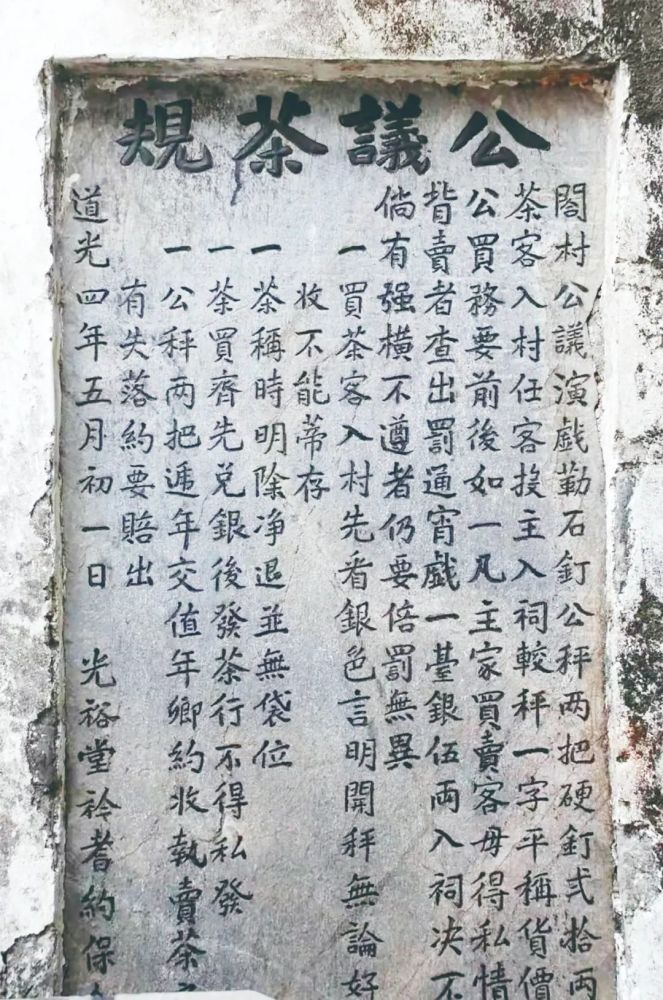 公議茶規
閤村公議演戲勒石釘公秤两把硬釘弍拾両
茶客入村任客投主入祠較秤一字平稱貨價
公買務要前後如一凡主家買賣客毋得私情
背賣者查出罰通宵戲一䑓銀伍両入祠决不
倘有强横不遵者仍要倍罰無異
一買茶客入村先看銀色言明開秤無論好
收不能蒂存
一茶稱時明除净退並無袋位
一茶買齊先兌銀後發茶行不得私發
一公秤两把遞年交值年鄉約收執賣茶
有失落約要賠出
道光四年五月初一日 光裕堂衿耆約保